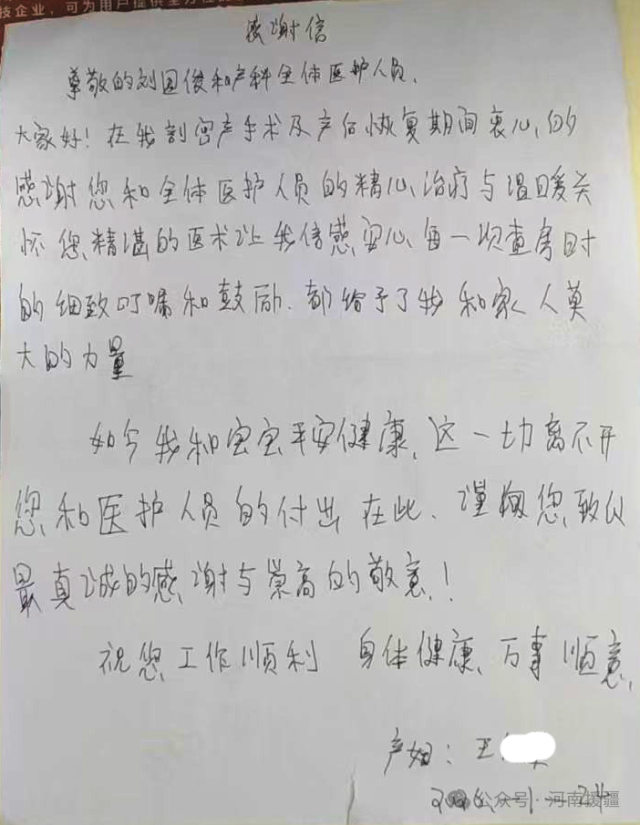 技企业，可为用户提供全方位
感谢信
尊敬的刘国俊和产科全体医护人员.
大家好！在我剖宫产手术及产后恢复期间衷心的
感谢您和全体医护人员的精心治疗与温暖关
怀您精湛的医术让我倍感安心、每一次查房时
的细致叮嘱和鼓励.都给予了我和家人莫
大的力量
如今我和宝宝平安健康,这一切离不开
您和医护人员的付出 在此、谨向您致以
最真诚的感谢与崇高的敬意！
祝您工作顺利 身体健康、万事顺意.
产妇：王
公众号·河南援疆